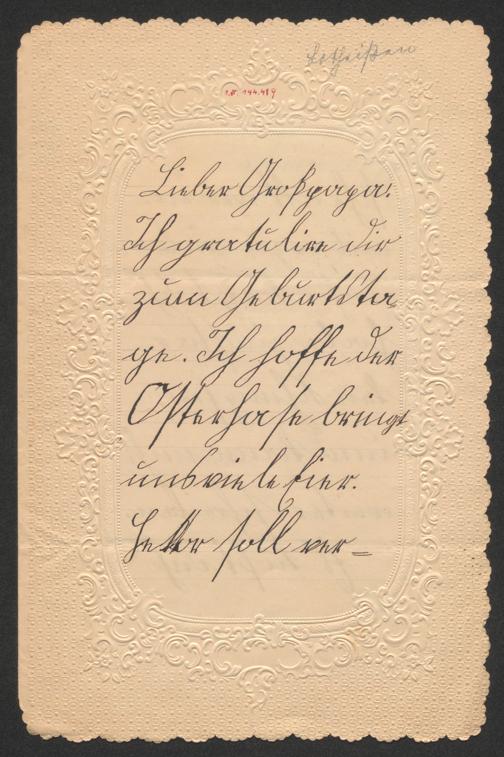 I.N. 194.489
Lieber Großpapa!
Ich gratulire dir
zum Geburtsta
ge. Ich hoffe der
Osterhase bringt
uns viele Eier.
Hektor soll ver=